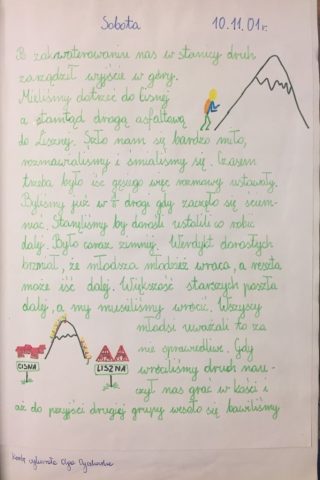 Sobota 10.11.01r.
Po zakwaterowaniu nas w stanicy druh
zarządził wyjście w góry.
Mieliśmy dotrzeć do Cisnej
a stamtąd drogą asfaltową
do Liszny. Szło nam się bardzo miło,
rozmawialiśmy i śmialiśmy się. Czasem
trzeba było iść gęsiego więc rozmowy ustawały.
Byliśmy już w drogi gdy zaczęło się ściem-
niać. Stanęliśmy by dorośli ustalili co robić
dalej. Było coraz zimniej. Werdykt dorosłych
brzmiał, że młodsza młodzież wraca, a reszta
może iść dalej. Większość starszych poszła
dalej, a my musieliśmy wrócić. Wszyscy
młodsi uważali to za
nie sprawiedliwe. Gdy
wróciliśmy druh nau-
czył nas grać w kości i
aż do przyjścia drugiej grupy wesoło się bawiliśmy
CISNA
LISZNA
Kartę wykonała Olga